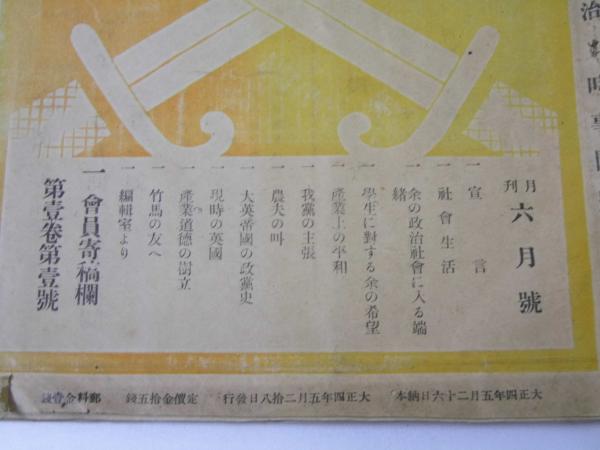 治時事
月刊 六月號
一 宣言
一 社會生活
一 余の政治社會に入る端緒
一 學生に對する余の希望
一 產業上の平和
一 我黨の主張
一 農夫の叫
一 大英帝國の政黨史
一 現時の英國
一 產業道德の樹立
一 竹馬の友へ
一 編輯室より
一 會員寄稿欄
第壹卷第壹號
大正四年五月二十六日納本 大正四年五月二拾八日發行 定價金拾五錢 郵料金壹錢